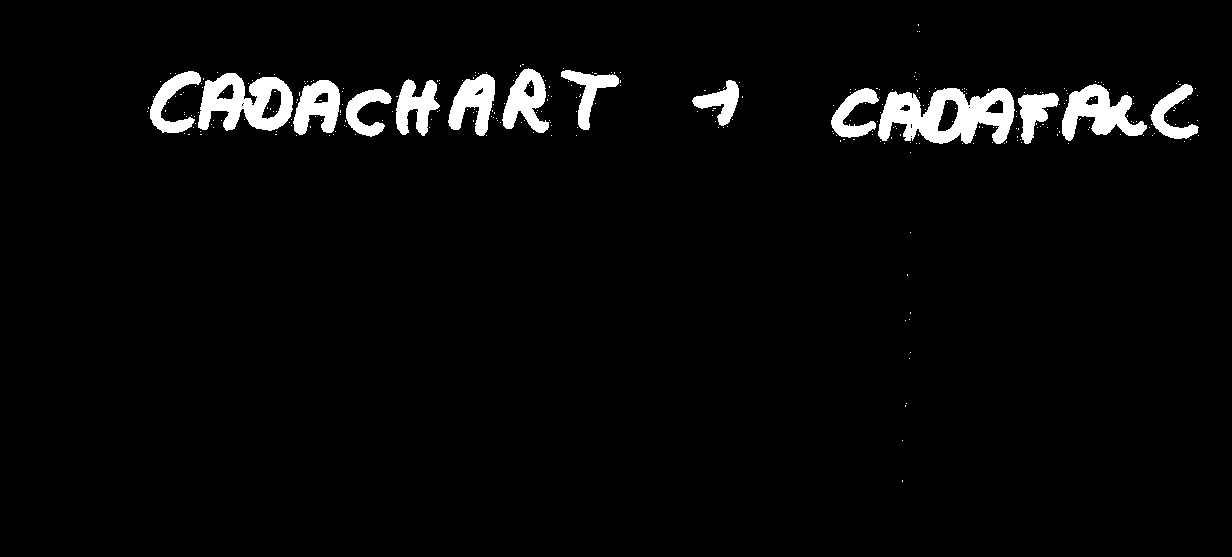 CADACHART → CADAFALC